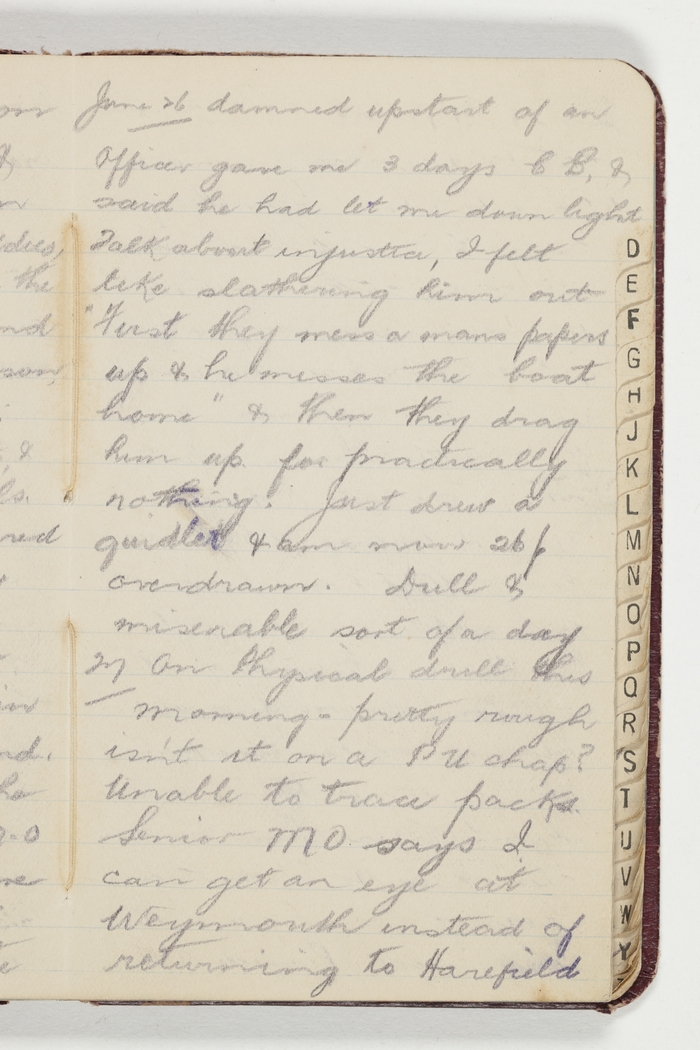 June 26 damned upstart of an
Officer gave me 3 days C B, &
said he had let me down light
Talk about injustice, I felt
like slathering him out
"First they mess a mans papers
up & he misses the boat
home" & then they drag
him up for practically
nothing. Just drew a
quidlet & am now 26/
overdrawn. Dull &
miserable sort of a day
27 On Physical drill this
morning - pretty rough
isn't it on a P U chap?
Unable to trace packs.
Senior M O. says I
can get an eye at
Weymouth instead of
returning to Harefield
D
E
F
G
H
J
K
L
M
N
O
P
Q
R
S
T
U
V
W
Y